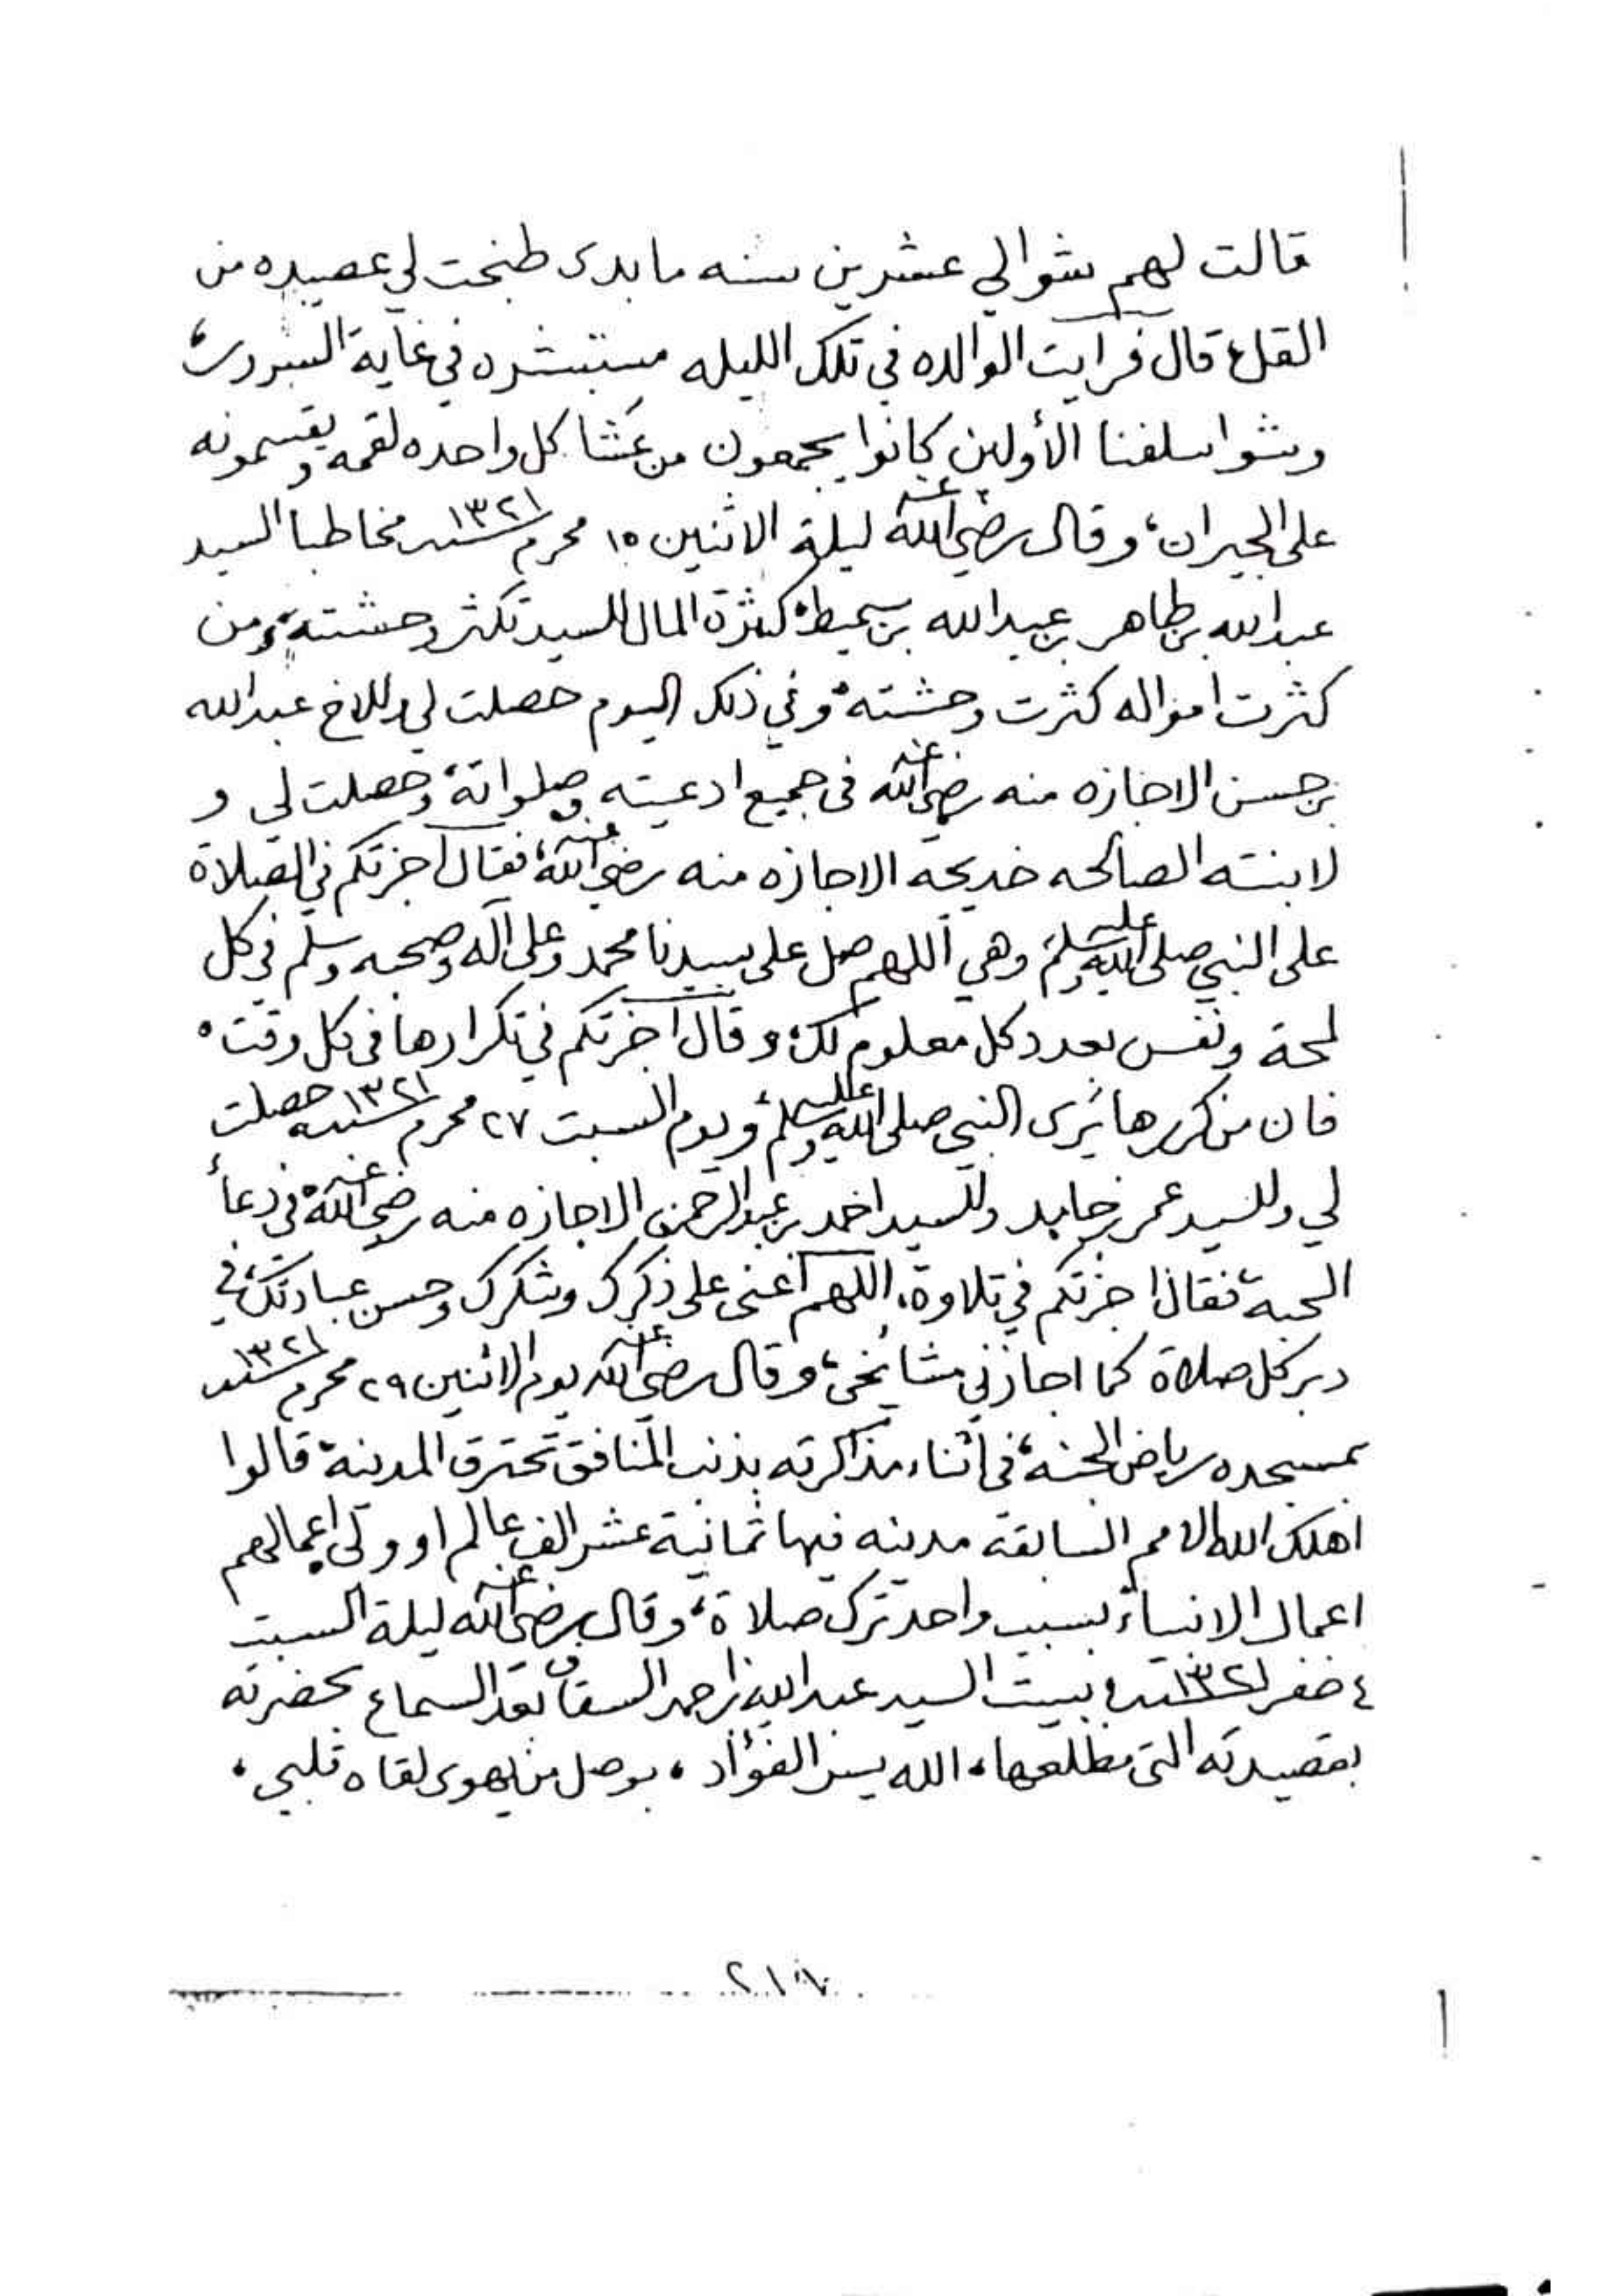 قالت لهم شوا لي عشرين سنه ما بدى طبخت لي عصيده من
القلى قال فرايت الوالده في تلك الليله مستبشره في غاية السرور،
وشوا سلفنا الأولين كانوا يجمعون من عشا كل واحده لقمه ويقسمونه
على الجيران، وقال رضي الله عنه ليلة الاثنين ١٥ محرم سنه ١٣٢١ مخاطبا السيد
عبدالله بن طاهر بن عبدالله بن سميط كثرة المال للسيد تكثر وحشته، ومن
كثرت امواله كثرت وحشته، وفي ذلك اليوم حصلت لي وللاخ عبدالله
بن حسن الاجازه منه رضي الله عنه في جميع ادعيته وصلواته، وحصلت لي و
لابنته الصالحه خديجة الاجازه منه رضي الله عنه، فقال اجزتكم في الصلاة
على النبي صلى الله عليه وسلم وهي اللهم صل على سيدنا محمد وعلى آله وصحبه وسلم في كل
لمحة ونفس بعدد كل معلوم لك، وقال اجزتكم في تكرارها في كل وقت،
فان من كررها يرى النبي صلى الله عليه وسلم، ويوم السبت ٢٧ محرم سنه ١٣٢١ حصلت
لي وللسيد عمر بن حامد وللسيد احمد بن عبدالرحمن الاجازه منه رضي الله عنه في دعاء
المحبة، فقال اجزتكم في تلاوة، اللهم أعني على ذكرك وشكرك وحسن عبادتك، في
دبر كل صلاة كما اجازني مشائخي، وقال رضي الله عنه يوم الاثنين ٢٩ محرم سنه ١٣٢١
بمسجده رياض الجنة، في اثناء مذاكرته بذنب المنافق تحترق المدينة، قالوا
اهلك الله الامم السابقة مدينه فيها ثمانية عشر الف عالم او ولي اعمالهم
اعمال الانبياء بسبب واحد ترك صلاة، وقال رضي الله عنه ليلة السبت
٤ صفر سنه ١٣٢١ في بيت السيد عبدالله بن احمد السقاف بعد السماع بحضرته
بقصيدته التي مطلعها، الله يسر الفؤاد، بوصل من يهوى لقاه قلبي،